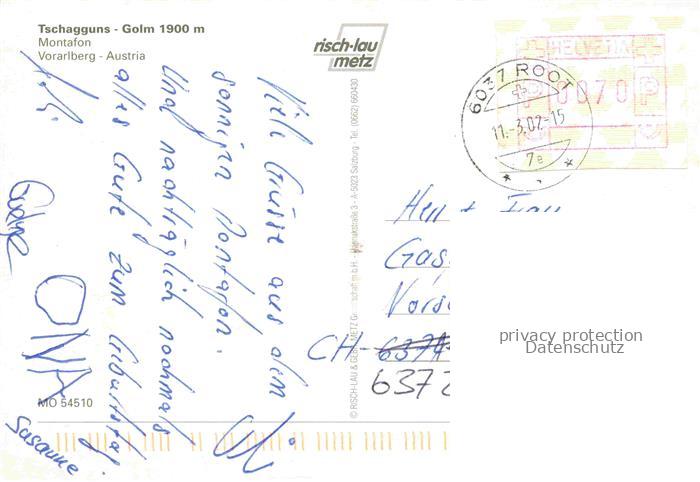 Tschagguns - Golm 1900 m
Montafon
Vorarlberg - Austria
risch-lau
metz
Viele Grüsse aus dem
sonnigen Montafon.
Und nachträglich nochmals
alles Gute zum Geburtstag
OMA
Susanne
MO 54510
© RISCH-LAU & GEBR. METZ Ges. · A-5023 Salzburg · Tel. (0662) 660430
HELVETIA
P 0070 P
6037 ROOT
11.-3.02-15
7e
Herr + Frau
CH- 6374
6372
privacy protection
Datenschutz